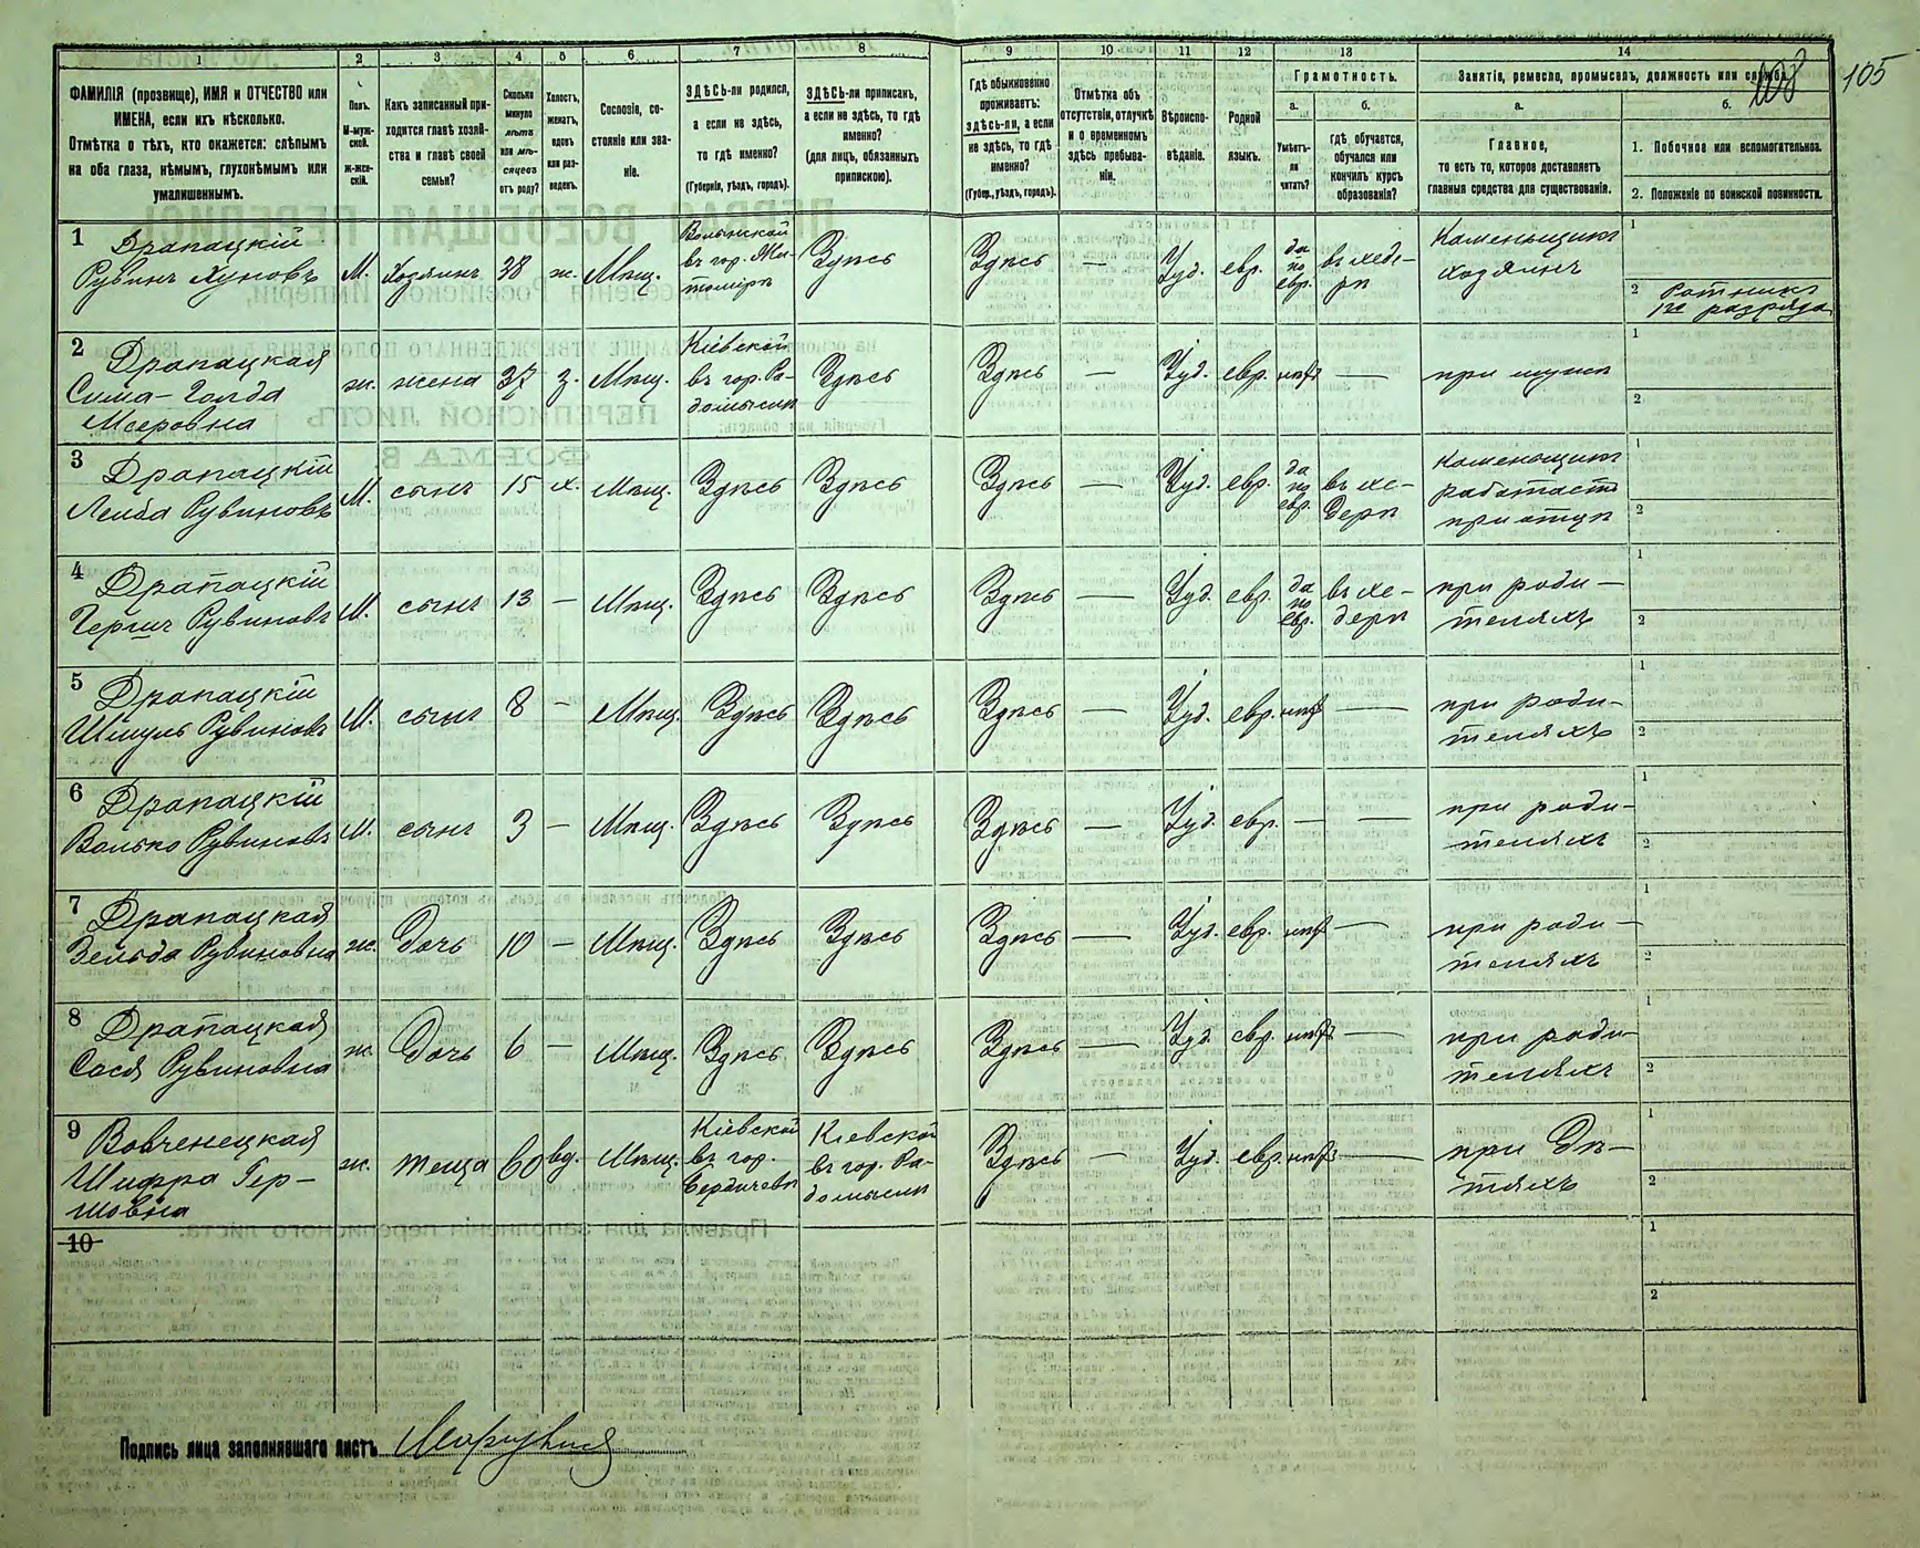 1
2
3
4
5
6
7
8
9
10
11
12
13
14
108
105
ФАМИЛІЯ (прозвище), ИМЯ и ОТЧЕСТВО или
ИМЕНА, если ихъ нѣсколько.
Отмѣтка о тѣхъ, кто окажется: слѣпымъ
на оба глаза, нѣмымъ, глухонѣмымъ или
умалишеннымъ.
Полъ.
М-муж-
ской.
Ж-жен-
скій.
Какъ записанный при-
ходится главѣ хозяй-
ства и главѣ своей
семьи?
Сколько
минуло
лѣтъ
или мѣ-
сяцевъ
отъ роду?
Холостъ,
женатъ,
вдовъ
или раз-
веденъ.
Сословіе, со-
стояніе или зва-
ніе.
ЗДѢСЬ-ли родился,
а если не здѣсь,
то гдѣ именно?
(Губернія, уѣздъ, городъ).
ЗДѢСЬ-ли приписанъ,
а если не здѣсь, то гдѣ
именно?
(для лицъ, обязанныхъ
припискою).
Гдѣ обыкновенно
проживаетъ:
здѣсь-ли, а если
не здѣсь, то гдѣ
именно?
(Губер., уѣздъ, городъ).
Отмѣтка объ
отсутствіи, отлучкѣ
и о временномъ
здѣсь пребыва-
ніи.
Вѣроиспо-
вѣданіе.
Родной
языкъ.
Грамотность.
а.
Умѣетъ-
ли
читать?
б.
гдѣ обучается,
обучался или
кончилъ курсъ
образованія?
Занятіе, ремесло, промыселъ, должность или служба.
а.
Главное,
то есть то, которое доставляетъ
главныя средства для существованія.
б.
1. Побочное или вспомогательное.
2. Положеніе по воинской повинности.
1 Драпацкій
Рувинъ Хуновъ
М.
Хозяинъ
38
ж.
Мѣщ.
Волынской
въ гор. Жи-
томірѣ
Здѣсь
Здѣсь
—
Іуд.
евр.
да
по
евр.
въ хеде-
рѣ
Каменьщикъ
хозяинъ
1
2 Ратникъ
1го разряда
2 Драпацкая
Сима-Голда
Мееровна
ж.
жена
37
з.
Мѣщ.
Кіевской
въ гор. Ра-
домыслѣ
Здѣсь
Здѣсь
—
Іуд.
евр.
нѣтъ
—
при мужѣ
1
2
3 Драпацкій
Лейба Рувиновъ
М.
сынъ
15
х.
Мѣщ.
Здѣсь
Здѣсь
Здѣсь
—
Іуд.
евр.
да
по
евр.
въ хе-
дерѣ
Каменьщикъ
работаетъ
при отцѣ
1
2
4 Драпацкій
Гершъ Рувиновъ
М.
сынъ
13
—
Мѣщ.
Здѣсь
Здѣсь
Здѣсь
—
Іуд.
евр.
да
по
евр.
въ хе-
дерѣ
при роди-
теляхъ
1
2
5 Драпацкій
Шмуль Рувиновъ
М.
сынъ
8
—
Мѣщ.
Здѣсь
Здѣсь
Здѣсь
—
Іуд.
евр.
нѣтъ
—
при роди-
теляхъ
1
2
6 Драпацкій
Волько Рувиновъ
М.
сынъ
3
—
Мѣщ.
Здѣсь
Здѣсь
Здѣсь
—
Іуд.
евр.
—
—
при роди-
теляхъ
1
2
7 Драпацкая
Зельда Рувиновна
ж.
Дочь
10
—
Мѣщ.
Здѣсь
Здѣсь
Здѣсь
—
Іуд.
евр.
нѣтъ
—
при роди-
теляхъ
1
2
8 Драпацкая
Сося Рувиновна
ж.
Дочь
6
—
Мѣщ.
Здѣсь
Здѣсь
Здѣсь
—
Іуд.
евр.
нѣтъ
—
при роди-
теляхъ
1
2
9 Вовченецкая
Шифра Гер-
шовна
ж.
теща
60
вд.
Мѣщ.
Кіевской
въ гор.
Бердичевѣ
Кіевской
въ гор. Ра-
домыслѣ
Здѣсь
—
Іуд.
евр.
нѣтъ
—
при Дѣ-
тяхъ
1
2
10
1
2
Подпись лица заполнявшаго листъ